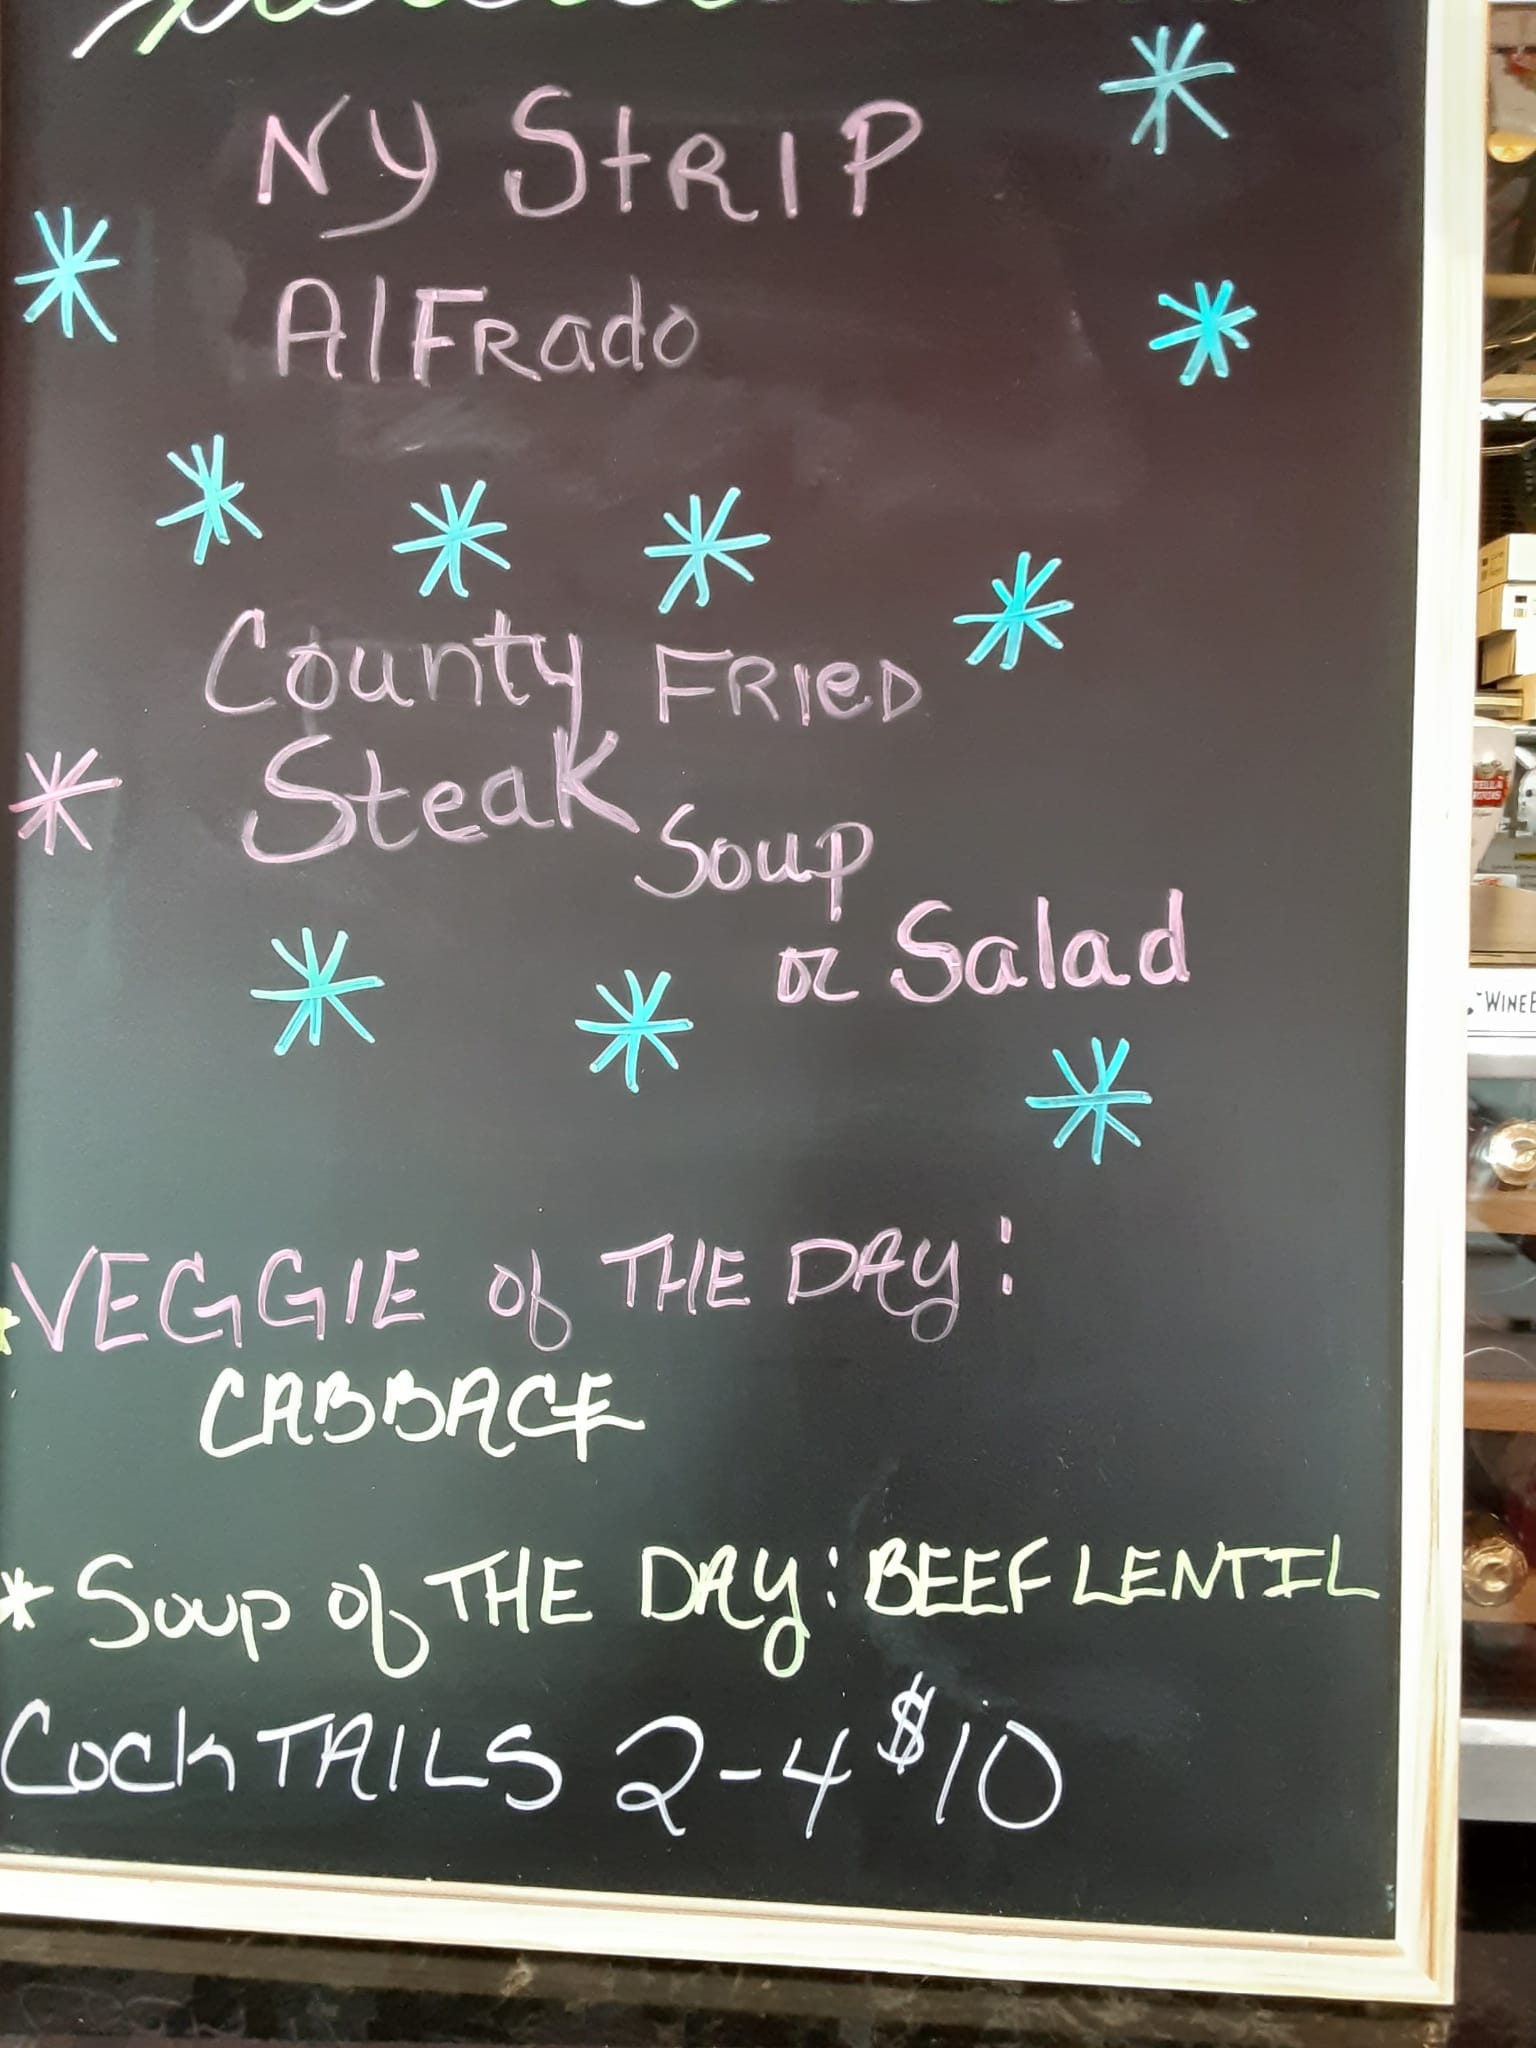 NY StRIP
AlFRado
County FRIeD
Steak Soup
or Salad
VEGGIE of THE DAy:
CABBAGE
* Soup of THE DAy: BEEF LENTIL
CockTAILS 2-4 $10
WINE